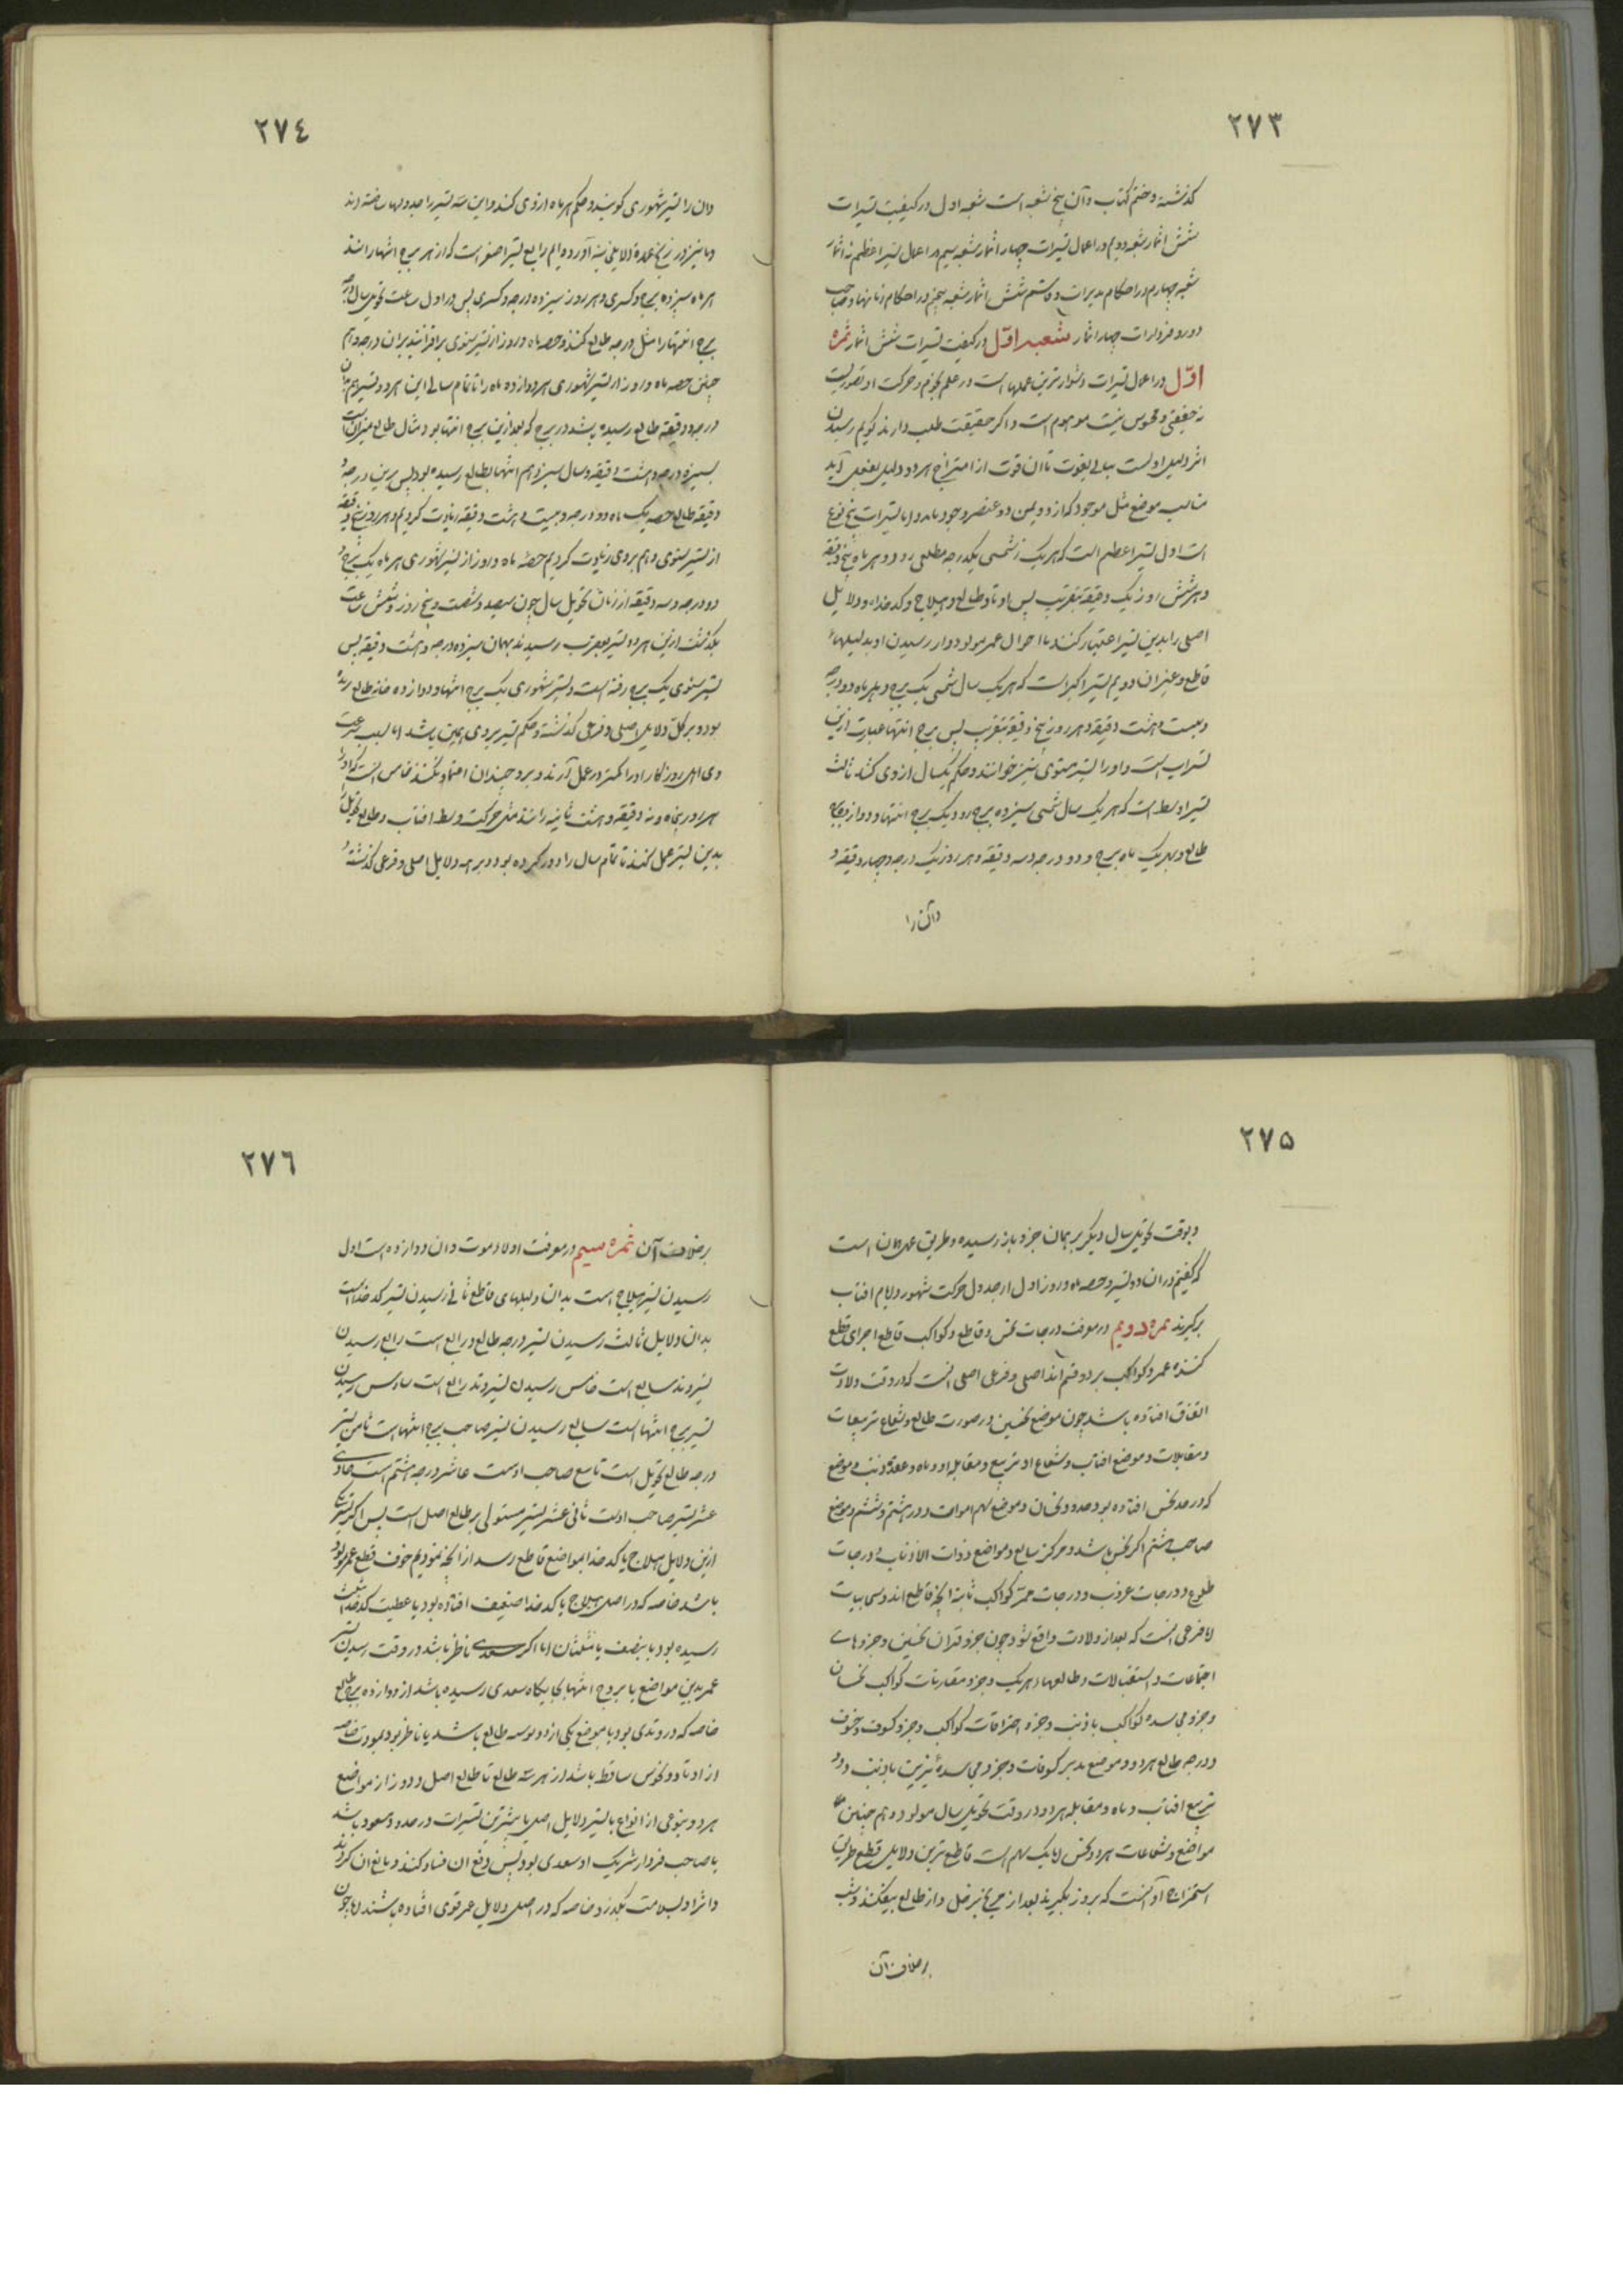 ٢٧٣
گذشته و ختم کتاب و آن پنج شعبه است شعبه اول در کیفیت تسیرات
شش اثمار شعبه دویم در اعمال تسیرات چهار اثمار شعبه سیم در اعمال تسیر اعظم نه اثمار
شعبه چهارم در احکام شش اثمار شعبه پنجم در احکام
چهار اثمار شعبه اوّل در کیفیت تسیرات شش اثمار ثمره
اوّل در اعمال تسیرات دشوارترین عملهاست در علم نجوم و حرکت او تصوریست
نه حقیقی و محسوس نیست موهوم است و اگر حقیقت طلب دارند گویم رسیدن
اثر دلیل اوست تا آن قوت از امتزاج هر دو دلیل بفعل آید
موضع مثل موجود که از دو عنصر وجود یابد و اما تسیرات پنج نوع
است اول تسیر اعظم است که هر یک شمسی یکدرجه مطلعی رود و هر ماه پنج دقیقه
و هر شش روز یک دقیقه بتقریب پس اوتاد طالع و هیلاج و کدخداه و دلایل
اصلی را بدین تسیر اعتبار کنند تا احوال عمر مولود و از رسیدن او بدلیلهاء
قاطع و غیر آن دویم تسیر اکبر است که هر یک سال شمسی یک برج و بهر ماه دو درجه
و بیست و هشت دقیقه و هر روز پنج دقیقه بتقریب پس برج انتها عبارت ازین
تسیر است و او را تسیر سنوی نیز خوانند و حکم یکسال از وی کنند ثالث
تسیر اوسط است که هر یک سال شمسی سیزده برج رود یک برج انتها و دوازده
طالع و بهر یک ماه برج و دو درجه و سه دقیقه و هر روز یک درجه و چهار دقیقه و
و آن را
٢٧٤
و آن را تسیر شهوری گویند و حکم هر ماه از وی کنند و این سه تسیر را جدولها ساخته‌اند
و ما نیز در زیج عمده آورده‌ایم رابع تسیر اصغر است که از هر برج انتها رانند
هر ماه سیزده برج و کسری و هر روز سیزده درجه و کسری پس در اول ساعت تحویل سال درجه
برج انتها را مثل درجه طالع کنند و حصه ماه و روز از تسیر سنوی برافزایند بر آن درجه و هم
چنین حصه ماه و روز از تسیر شهوری هر دوازده ماه را تا تمام سال این هر دو تسیر هم بدان
درجه و دقیقه طالع رسیده باشد در برج که بعد ازین برج انتها بود مثال طالع میزان است
بسیزده درجه و هشت دقیقه و سال سیزدهم انتها بطالع رسیده بود پس برین درجه و
دقیقه طالع حصه یک ماه دو درجه و بیست و هشت دقیقه زیادت کردیم و هر روز پنج دقیقه
از تسیر سنوی و هم بر وی زیادت کردیم حصه ماه و روز از تسیر شهوری هر ماه یک برج و
دو درجه و سه دقیقه از زمان تحویل سال چون سیصد و شصت و پنج روز و شش ساعت
بگذشت ازین هر دو تسیر بعقرب رسیدند بهمان سیزده درجه و هشت دقیقه پس
تسیر سنوی یک برج رفته است و تسیر شهوری یک برج انتها و دوازده خانه طالع رفته
بود و بر کل دلایل اصلی و فرعی گذشته و حکم تسیر بر وی همین باشد اما بسبب سرعت
وی اهل روزگار او را کمتر در عمل آرند و برو چندان اعتماد نکنند خامس است که او را
هر روز پنجاه و نه دقیقه و هشت ثانیه رانند مثل حرکت وسط افتاب و طالع تحویل را
بدین تسیر عمل کنند تا تمام سال را دور کرده بود و بر همه دلایل اصلی و فرعی گذشته و
٢٧٥
و بوقت تحویل سال دیگر بر همان جزو باز رسیده و طریق عمل همان است
که گفتیم در ان دو تسیر و حصه ماه و روز اول از جدول حرکت شهور و ایام افتاب
برگیرند ثمره دویم در معرفت درجات نحس و قاطع و کواکب قاطع اجزای قطع
کننده عمر و کواکب بر دو قسم اند اصلی و فرعی اصلی انست که در وقت ولادت
اتفاق افتاده باشد چون موضع نحسین در صورت طالع و شعاع تربیعات
و مقابلات و موضع افتاب و شعاع او تربیع و مقابله او و ماه و عقده ذنب و موضع
که در حد نحس افتاده بود و حدود نحسان و موضع سهم الموت و درجه هشتم و ششم و موضع
صاحب هشتم اگر نحس باشد و مرکز سابع و مواضع ذوات الاذناب و درجات
طلوع و درجات غروب و درجات ممر کواکب ثابته انچه قاطع اند و سحابیات
اما فرعی انست که بعد از ولادت واقع شود چون جزو قران نحسین و جزوهای
اجتماعات و استقبالات و طالعهای هر یک و جزو مقارنات کواکب نحسان
و جزو مجاسده کواکب با ذنب و جزو احتراقات کواکب و جزو کسوف و خسوف
و درجه طالع هر دو و موضع مدبر کسوفات و جزو مجاسدهٔ نیرین با ذنب و دو
تربیع افتاب و ماه و مقابله هر دو در وقت تحویل سال مولود و هم چنین
مواضع و شعاعات هر دو نحس اما یک سهم است قاطع ترین دلایل قطع طریق
استخراج او آنست که بروز بگیرند بعد از مریخ بزحل و از طالع بیفکنند و بشب
بر خلاف آن
٢٧٦
بر خلاف آن ثمره سیم در معرفت اولاد موت و آن دوازده است اول
رسیدن تسیر هیلاج است بدان دلیلهای قاطع ثانی رسیدن تسیر کدخداست
بدان دلایل ثالث رسیدن تسیر درجه طالع و رابع است رابع رسیدن
تسیر وتد سابع است خامس رسیدن تسیر وتد رابع است سادس رسیدن
تسیر برج انتهاست سابع رسیدن تسیر صاحب برج انتهاست ثامن تسیر
درجه طالع تحویل است تاسع صاحب اوست عاشر درجه هشتم است حادی
عشر تسیر صاحب اوست ثانی عشر تسیر مستولی بر طالع اصل است پس اگر تسیر یکی
ازین دلایل هیلاج یا کدخدا بمواضع قاطع رسد از انچه نمودیم خوف قطع عمر بود
باشد خاصه که در اصل هیلاج یا کدخدا ضعیف افتاده بود یا عطیت کدخدا بثلث
رسیده بود یا بنصف یا بثلثان اما اگر سعدی ناظر باشد در وقت رسیدن تسیر
عمر بدین مواضع یا بروج انتها بجایگاه سعدی رسیده باشد از دوازده برج طالع
خاصه که در وتدی بود یا موضع یکی از دو بوسه طالع باشد یا ناظر بود بمودت خاصه
از اوتاد و نحوس ساقط باشد از هر سه طالع تا طالع اصل و دور از مواضع
هر دو بنوعی از انواع یا تسیر دلایل اصلی یا بیشترین تسیرات در حدود سعود باشد
یا صاحب فردار شریک او سعدی بود پس دفع ان فساد کند و مانع ان گردد
و اثر او بسلامت بگذرد خاصه که در اصل دلایل عمر قوی افتاده باشند اما چون